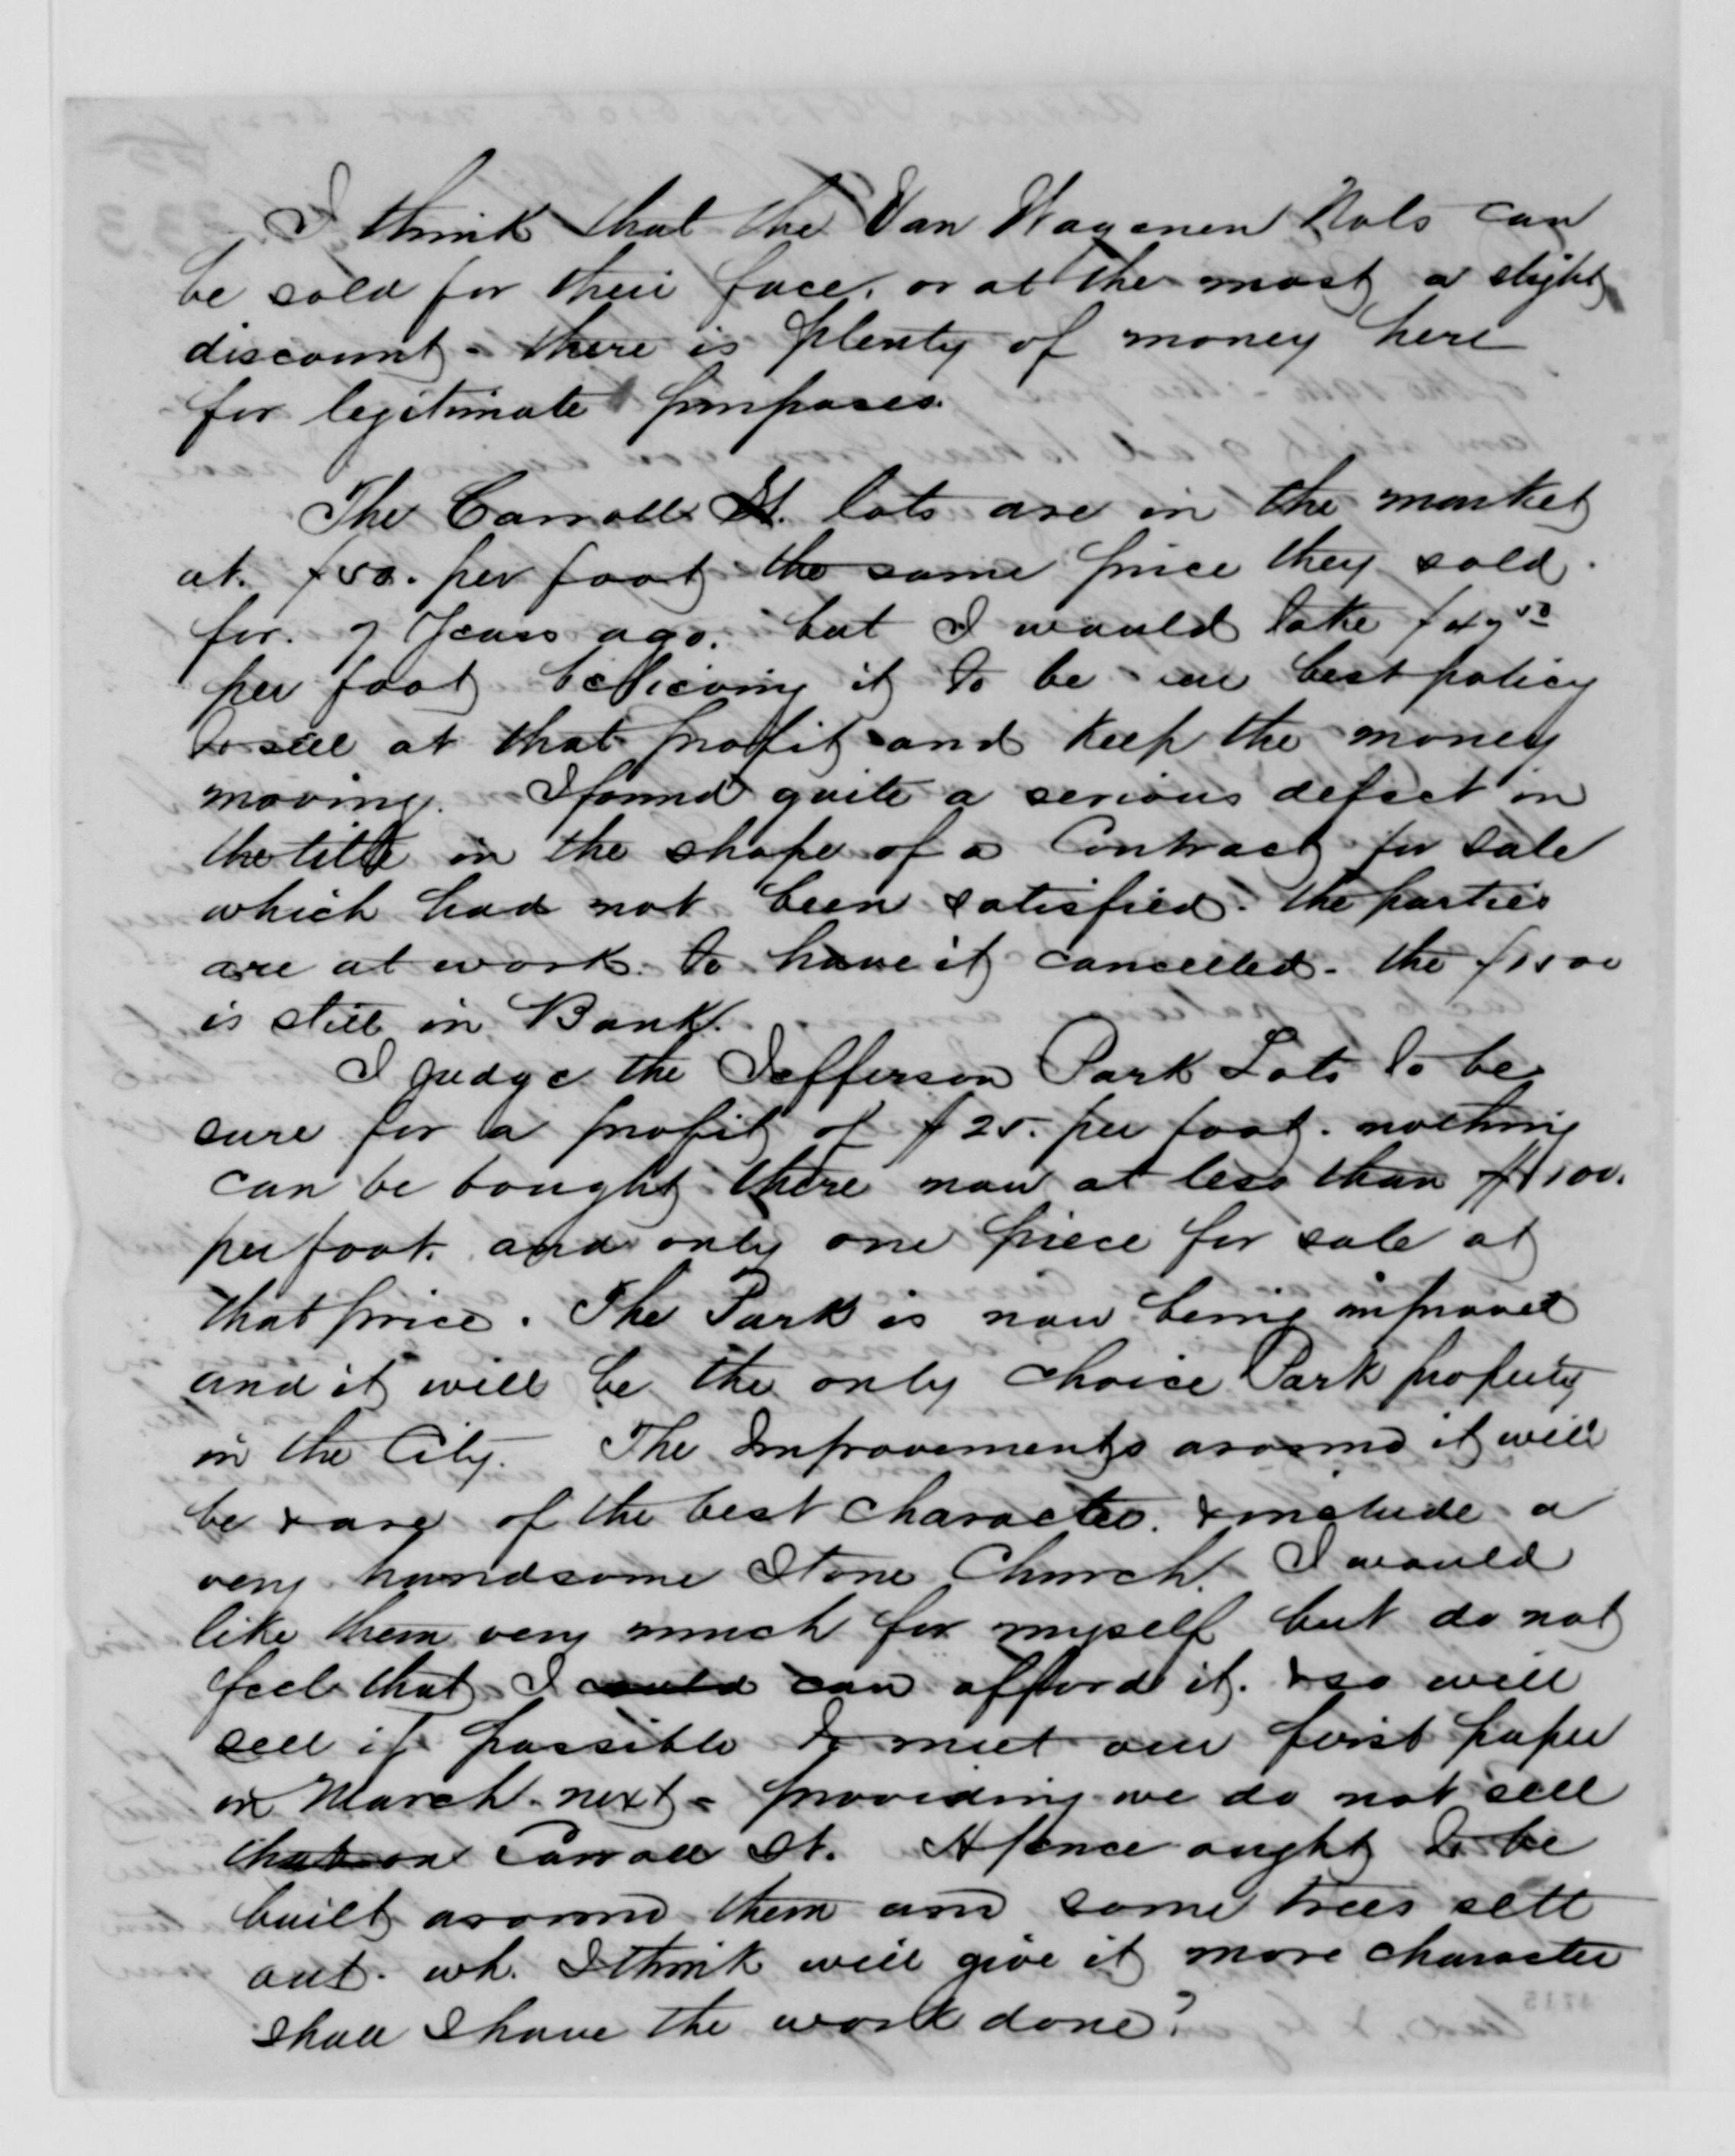 I think that the Van Wagenen Nots can
be sold for their face. or at the most a slight
discount - there is plenty of money here
for legitimate purposes.
The Carroll St. lots are in the market
at. $50. per foot the same price they sold.
for. 7 Years ago. but I would take $47 50
per foot believing it to be our best policy
to sell at that profit and keep the money
moving. I found quite a serious defect in
the title in the shape of a Contract for Sale
which had not been satisfied. the parties
are at work. to have it cancelled. the $1500
is still in Bank.
I judge the Jefferson Park Lots to be
sure for a profit of $25. per foot. nothing
can be bought there now at less than $100.
per foot. and only one piece for sale at
that price. The Park is now being improved
and it will be the only choice Park property
in the City. The Improvements around it will
be & are of the best character. & include a
very handsome Stone Church. I would
like them very much for myself but do not
feel that I could can afford it. & so will
sell if possible to meet our first paper
in March next - providing we do not sell
that on Carroll St. A fence ought to be
built around them and some trees sett
out. wh. I think will give it more character
shall I have the work done?